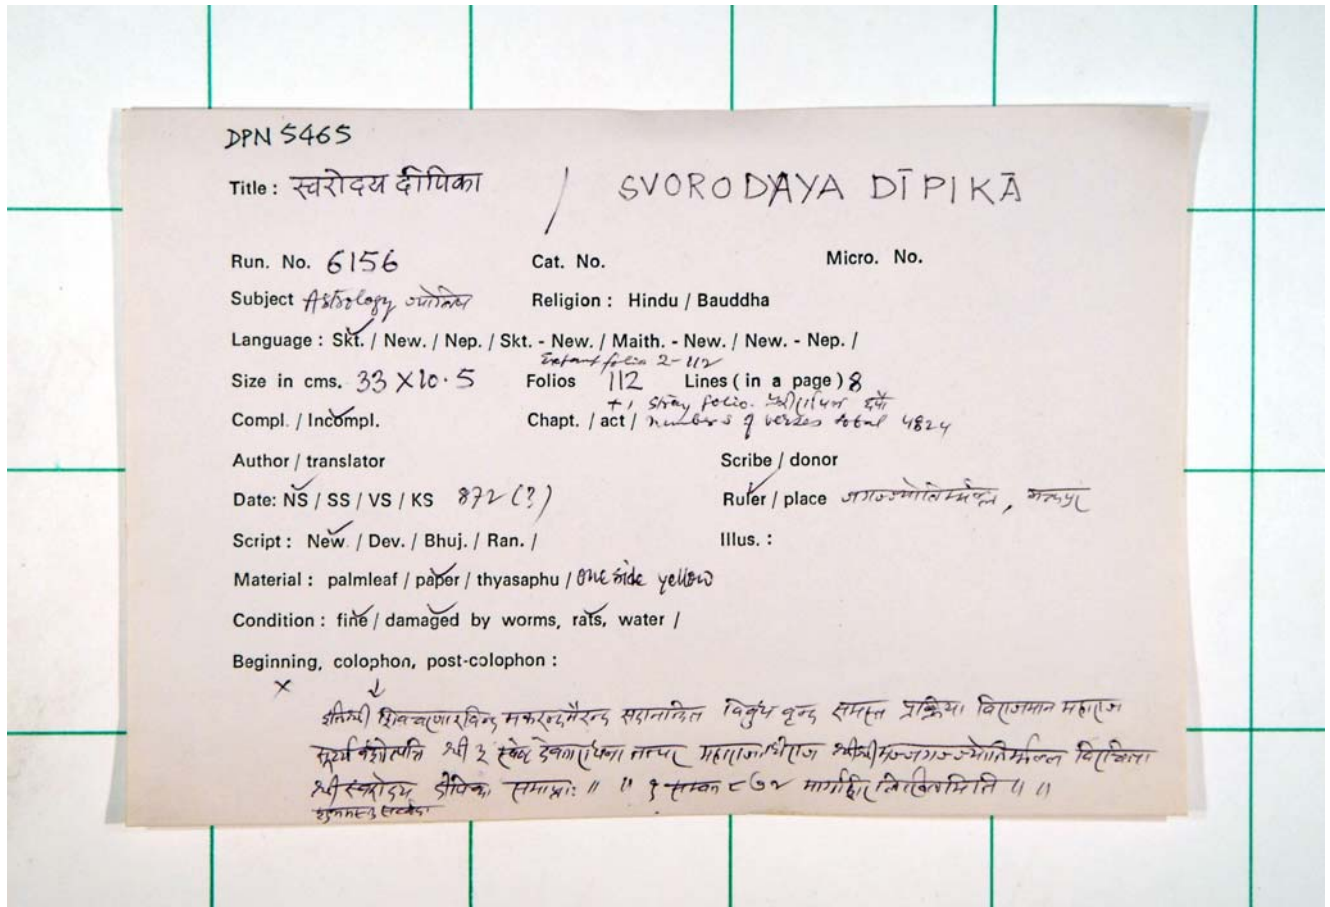 DPN 5465
Title : स्वरोदय दीपिका / SVORODAYA DĪPIKĀ
Run. No. 6156 Cat. No. Micro. No.
Subject Astrology ज्योतिष Religion : Hindu / Bauddha
Language : Skt. / New. / Nep. / Skt. - New. / Maith. - New. / New. - Nep. /
Extant folio 2-112
Size in cms. 33 X 10.5 Folios 112 Lines ( in a page ) 8
+1 stray folio.
Compl. / Incompl. Chapt. / act / numbers of verses total 4824
Author / translator Scribe / donor
Date: NS / SS / VS / KS 872 (?) Ruler / place जगज्ज्योतिर्म्मल्ल, भक्तपुर
Script : New. / Dev. / Bhuj. / Ran. / Illus. :
Material : palmleaf / paper / thyasaphu / one side yellow
Condition : fine / damaged by worms, rats, water /
Beginning, colophon, post-colophon :
x ↓
इतिश्री शिवचरणारविन्द मकरन्द सदानन्दित विबुध वृन्द समस्त प्रक्रिया विराजमान महाराज
सूर्य्य वंशोत्पत्ति श्री ३ देवताराधना तत्पर महाराजाधिराज श्रीश्रीमज्जगज्ज्योतिर्म्मल्ल विरचिता
श्री स्वरोदय दीपिका समाप्ताः ॥ ॥ ८७२ मार्गशिर लिखितमिति ॥ ॥
शुभमस्तु सर्व्वदा